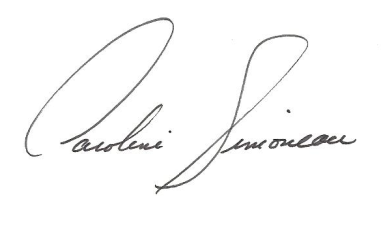 Caroline Simoneau